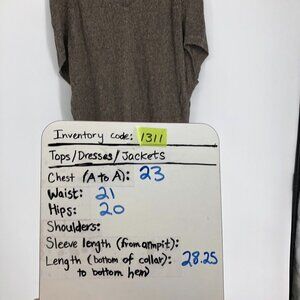 Inventory code: 1311
Tops/Dresses/Jackets
Chest (A to A): 23
Waist: 21
Hips: 20
Shoulders:
Sleeve length (from armpit):
Length (bottom of collar): 28.25
to bottom hem)